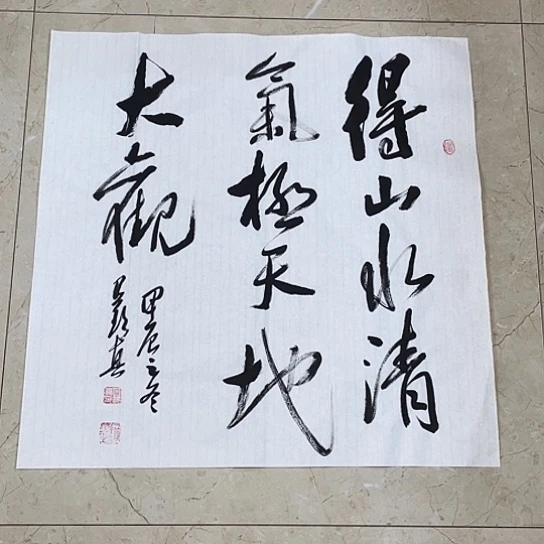 得山水清
氣極天地
大觀
甲辰之冬
真